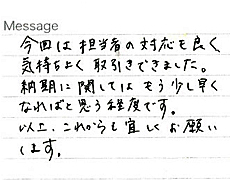 Message
今回は担当者の対応も良く
気持ちよく取引きできました。
納期に関してはもう少し早く
なればと思う程度です。
以上、これからも宜しくお願い
します。